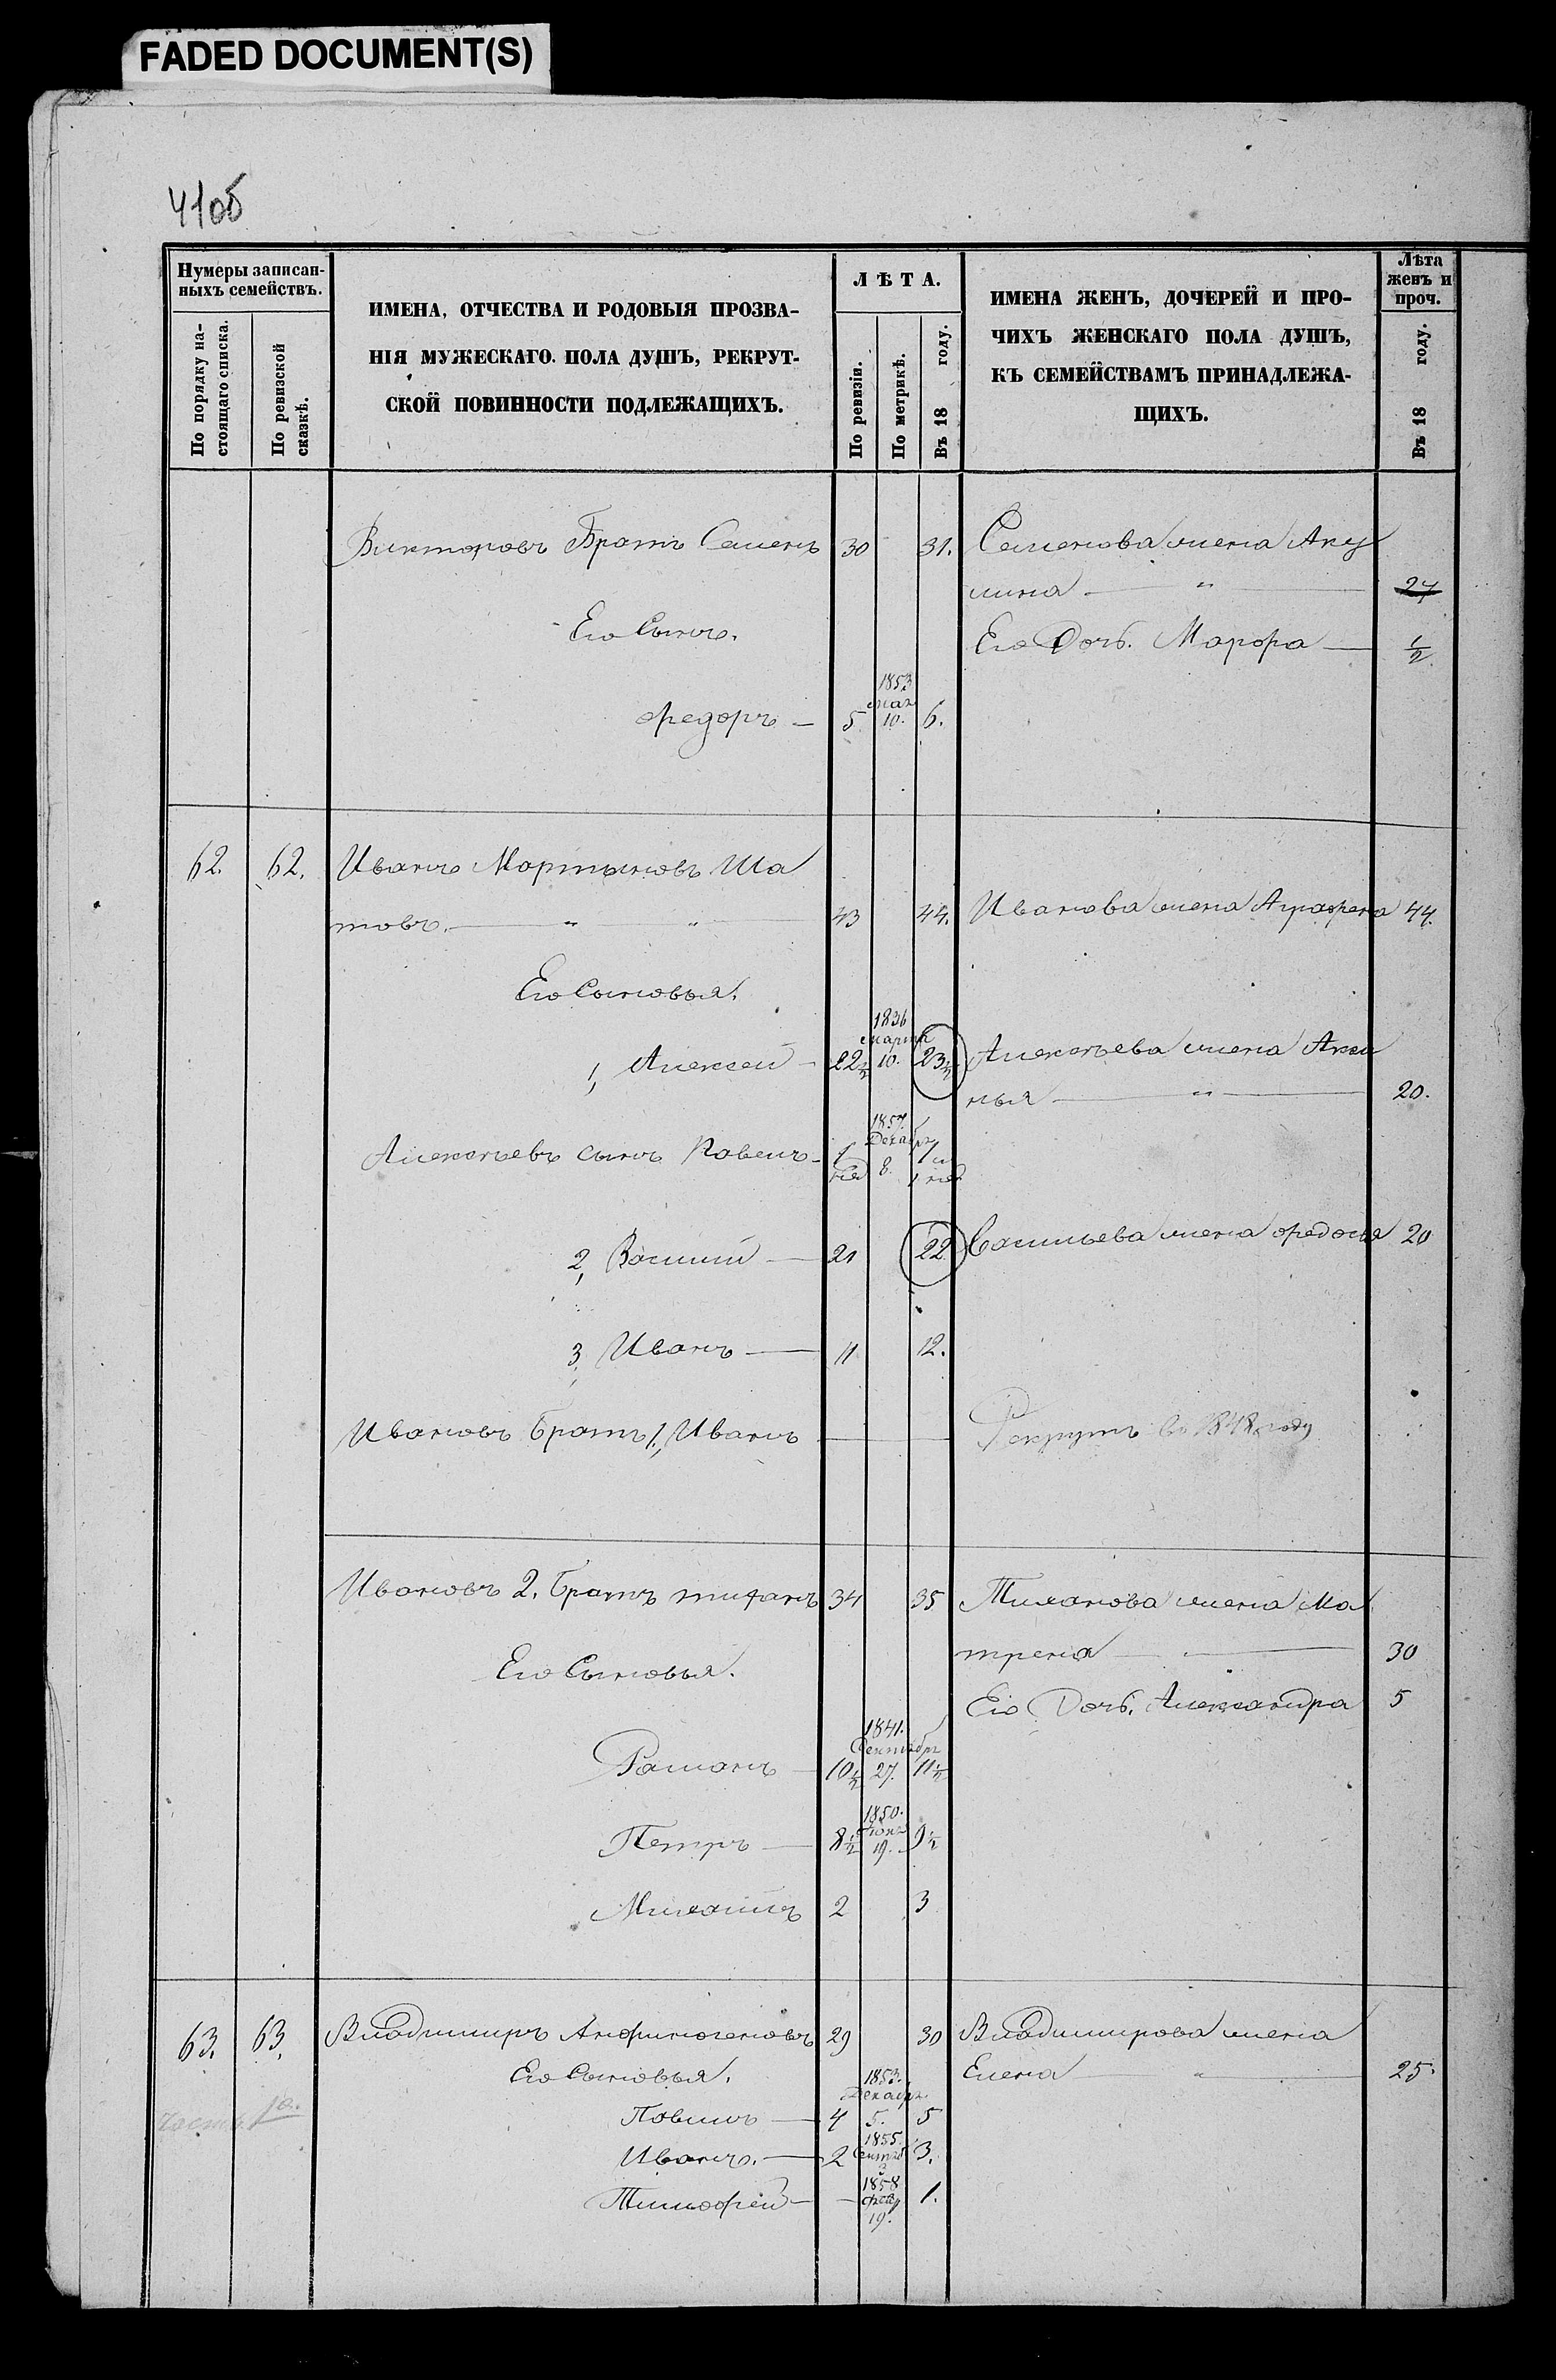 FADED DOCUMENT(S)
41об
Нумеры записан-
ныхъ семействъ.
По порядку на-
стоящаго списка.
По ревизской
сказкѣ.
ИМЕНА, ОТЧЕСТВА И РОДОВЫЯ ПРОЗВА-
НІЯ МУЖЕСКАГО ПОЛА ДУШЪ, РЕКРУТ-
СКОЙ ПОВИННОСТИ ПОДЛЕЖАЩИХЪ.
ЛѢТА.
По ревизіи.
По метрикѣ.
Въ 18 году.
ИМЕНА ЖЕНЪ, ДОЧЕРЕЙ И ПРО-
ЧИХЪ ЖЕНСКАГО ПОЛА ДУШЪ,
КЪ СЕМЕЙСТВАМЪ ПРИНАДЛЕЖА-
ЩИХЪ.
Лѣта
женъ и
проч.
Въ 18 году.
Викторовъ Братъ Семенъ 30 31. Семенова жена Аку
лина — " — 27
Его Сынъ.
Его Дочь. Марфа — 1/2
1853
мая
Федоръ — 5 10. 6.
62. 62. Иванъ Мартыновъ Ша
товъ. — " " — 43 44. Иванова жена Аграфена 44.
Его Сыновья.
1836
марта
1, Алексей — 22 1/2 10. 23 1/2 Алексѣева жена Акси
нья — " — 20.
1857.
Декабр
Алексѣевъ сынъ Павелъ — 1 нед 8. 1 и 1 нед
2, Василий — 21 22 Васильева жена Федосья 20
3, Иванъ — 11 12.
Ивановъ Братъ 1, Иванъ — Рекрутъ въ 1848 году
Ивановъ 2. Братъ тиханъ 34 35 Тиханова жена Ма
трена — 30
Его Сыновья.
Его Дочь. Александра 5
1841.
Сентябр
Раманъ — 10 1/2 27. 11 1/2
1850.
Июня
Петръ — 8 1/2 19. 9 1/2
Михаилъ 2 3
63. 63. Владимиръ Анфиногеновъ 29 30 Владимирова жена
Его Сыновья. Елена — " — 25.
1853.
Декабр
Павилъ — 4 5. 5
1855.
Сентяб
Иванъ. — 2 3.
1858
февр
Тимофей — — 19. 1.